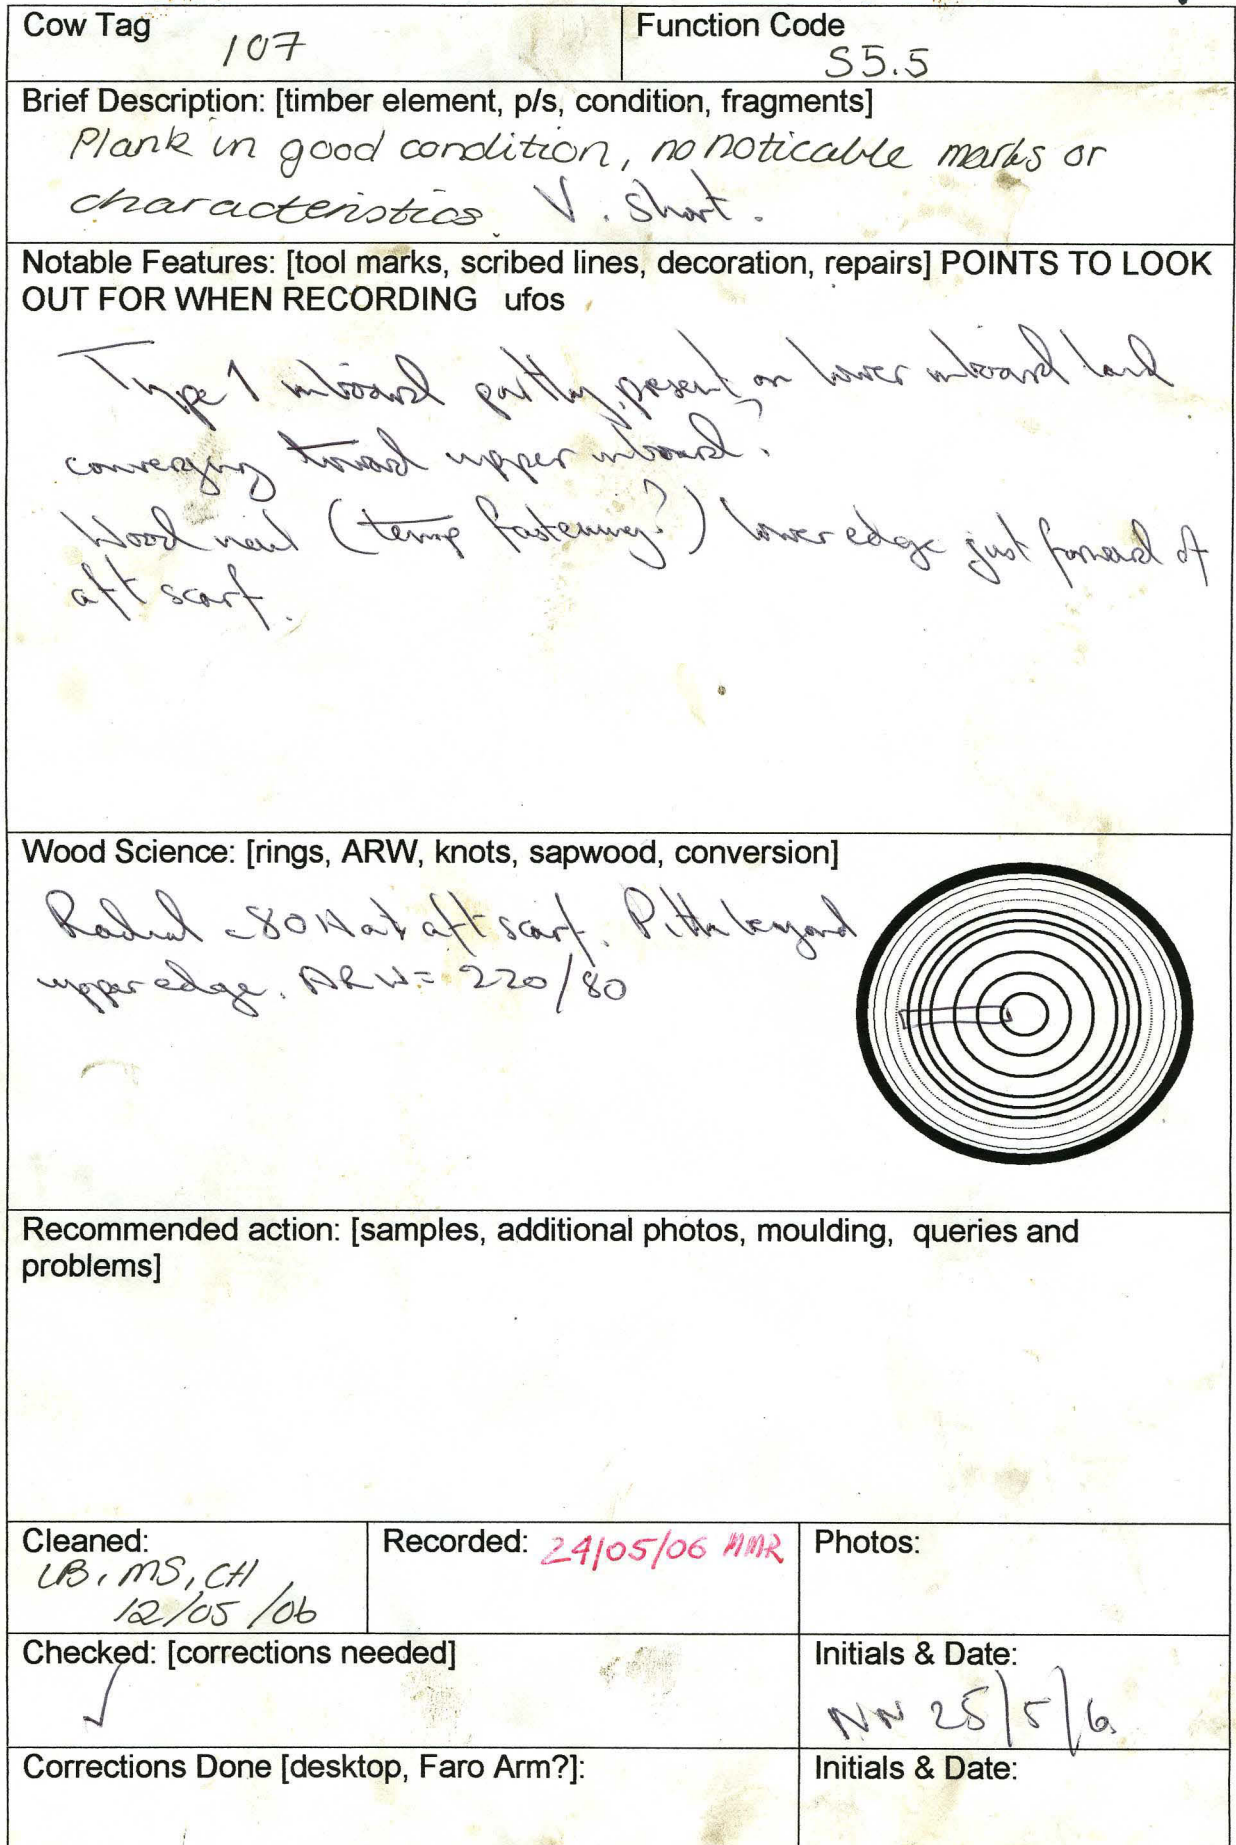 Cow Tag
107
Function Code
S5.5
Brief Description: [timber element, p/s, condition, fragments]
Plank in good condition, no noticable marks or
characteristics. V. Short.
Notable Features: [tool marks, scribed lines, decoration, repairs] POINTS TO LOOK
OUT FOR WHEN RECORDING ufos
Type 1 inboard partly present on lower inboard land
converging toward upper inboard?
Wood nail (temp fastening?) lower edge just forward of
aft scarf.
Wood Science: [rings, ARW, knots, sapwood, conversion]
Radial at aft scarf. Pith beyond
upper edge. ARW = 220/80
Recommended action: [samples, additional photos, moulding, queries and
problems]
Cleaned:
LB, MS, CH
12/05/06
Recorded: 24/05/06
Photos:
Checked: [corrections needed]
✓
Initials & Date:
NN 25/5/6
Corrections Done [desktop, Faro Arm?]:
Initials & Date: